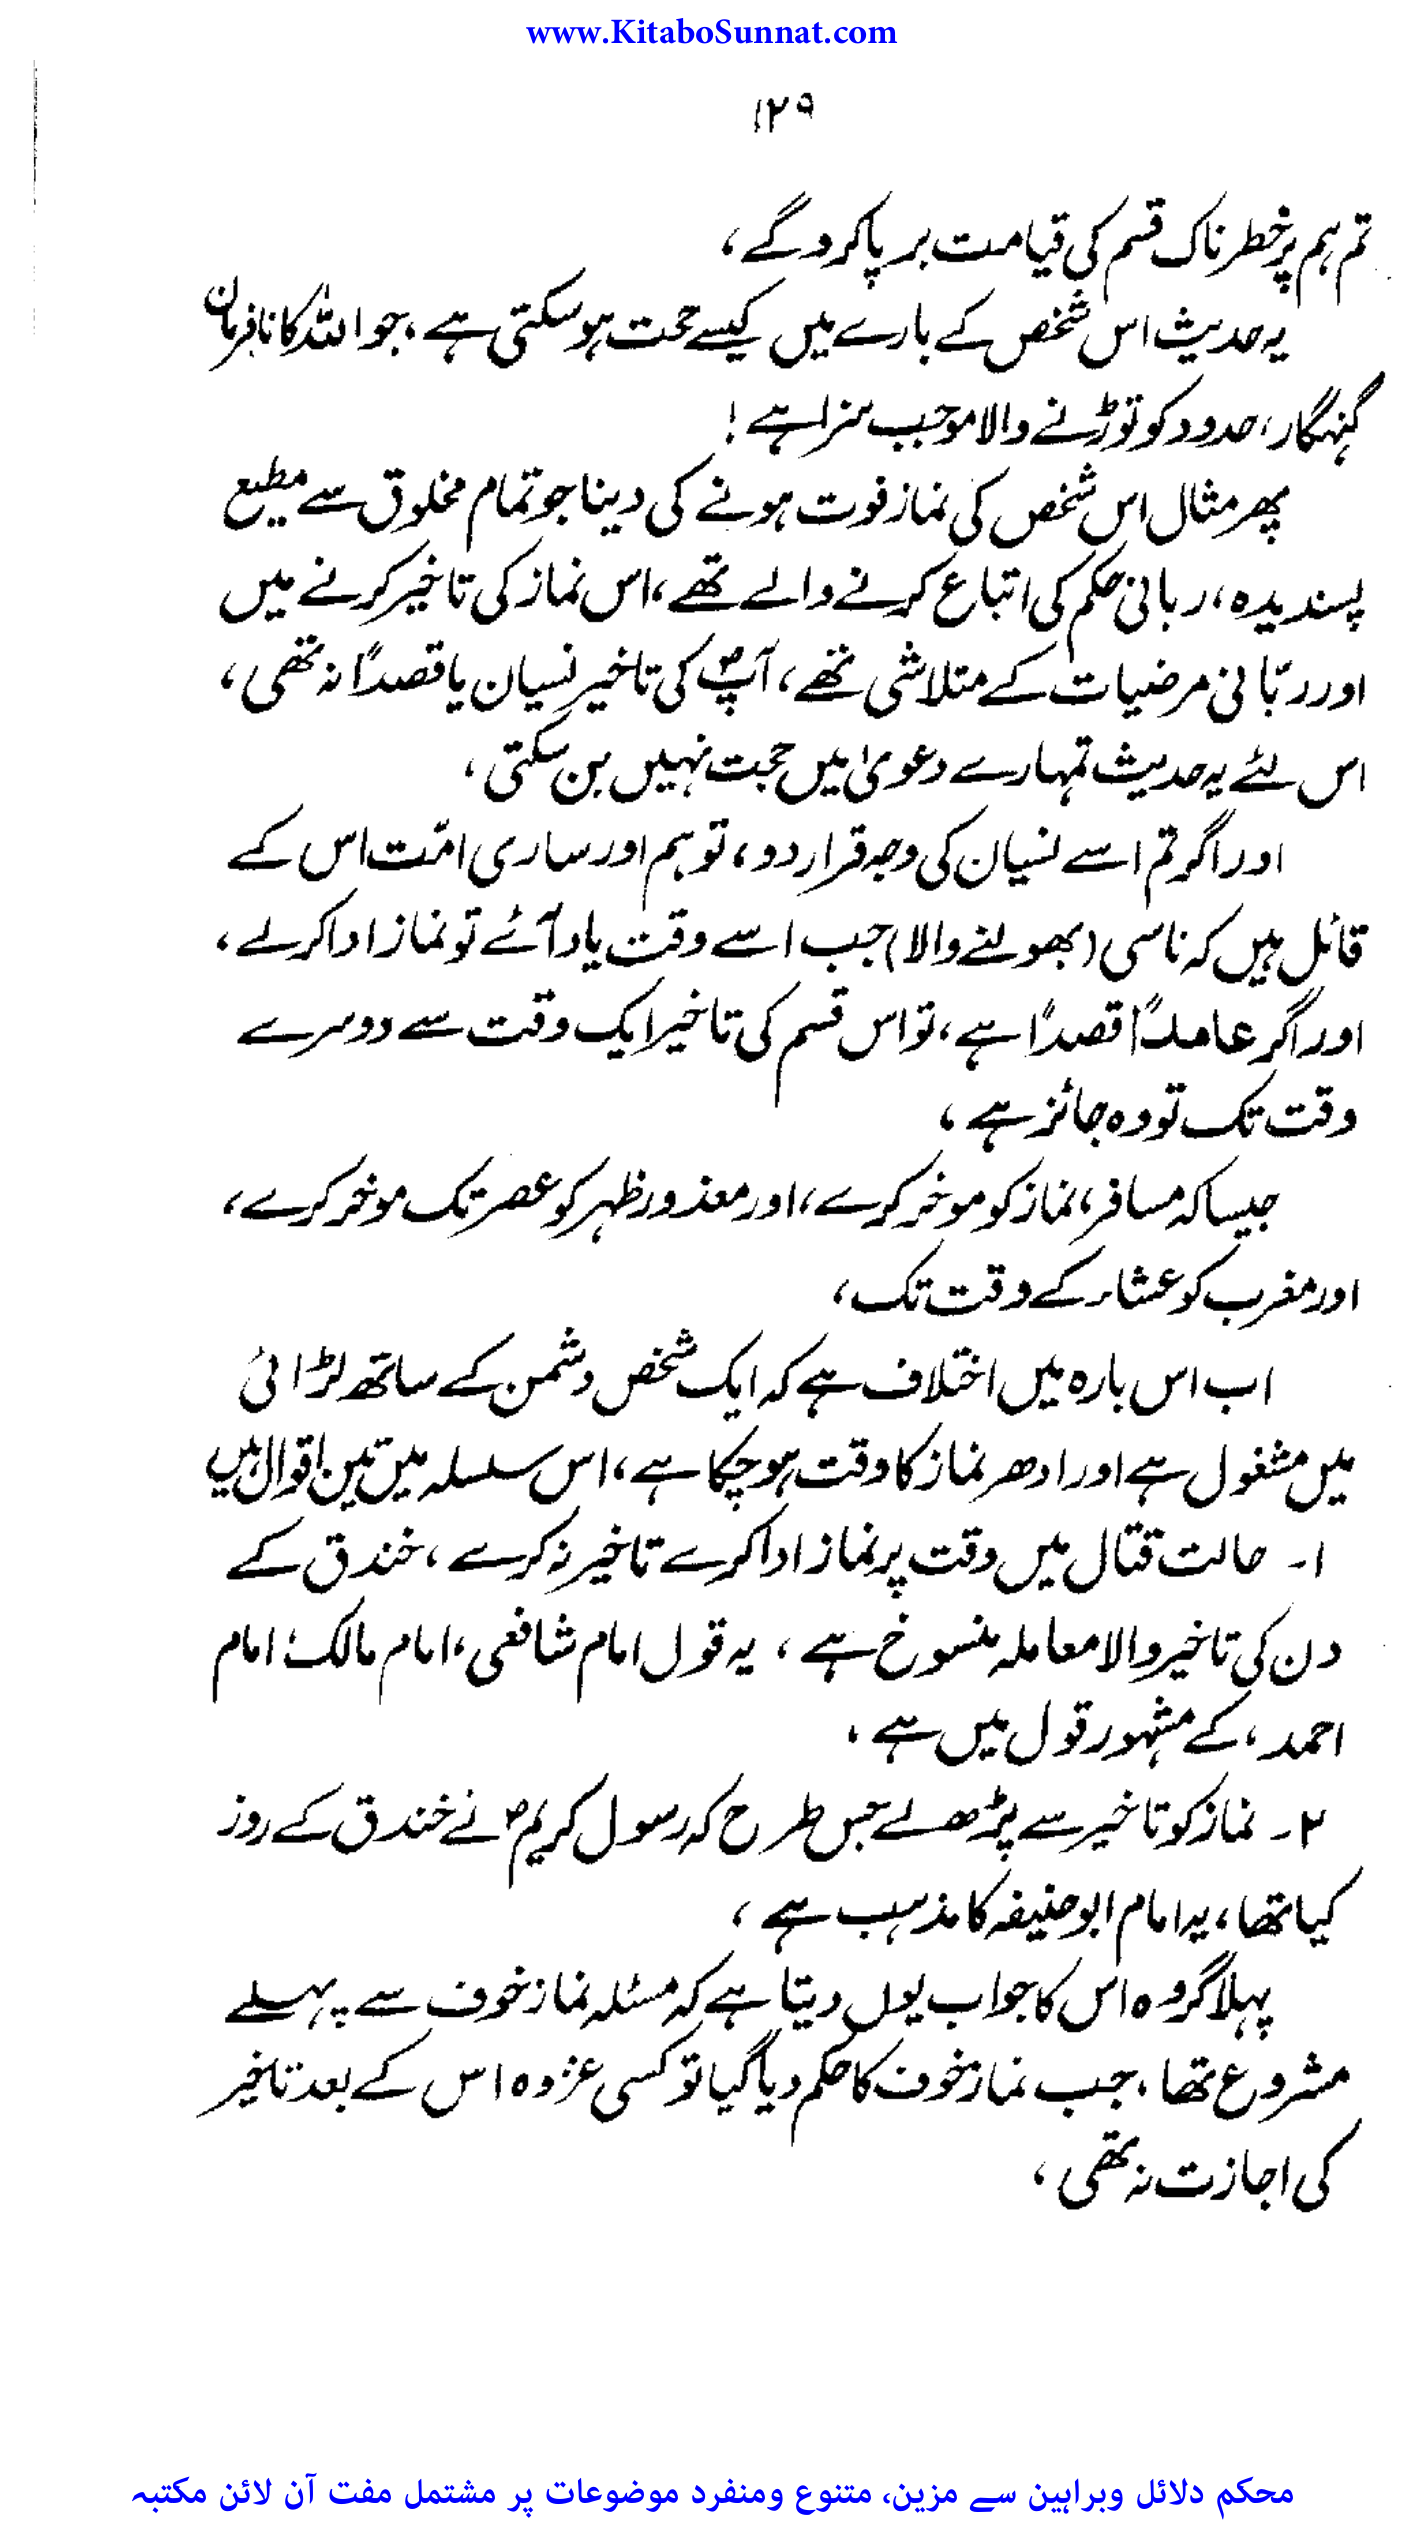 www.KitaboSunnat.com
۱۲۹
تم ہم پر خطرناک قسم کی قیامت برپا کرو گے،
یہ حدیث اس شخص کے بارے میں کیسے حجت ہو سکتی ہے، جو اللہ کا نافرمان
گنہگار، حدود کو توڑنے والا موجب سزا ہے!
پھر مثال اس شخص کی نماز فوت ہونے کی دینا جو تمام مخلوق سے مطیع
پسندیدہ، ربانی حکم کی اتباع کرنے والے تھے، اس نماز کی تاخیر کرنے میں
اور ربّانی مرضیات کے متلاشی تھے، آپؐ کی تاخیر نسیان یا قصداً نہ تھی،
اس لئے یہ حدیث تمہارے دعویٰ میں حجت نہیں بن سکتی،
اور اگر تم اسے نسیان کی وجہ قرار دو، تو ہم اور ساری امّت اس کے
قائل ہیں کہ ناسی (بھولنے والا) جب اسے وقت یاد آئے تو نماز ادا کر لے،
اور اگر عامداً قصداً ہے، تو اس قسم کی تاخیر ایک وقت سے دوسرے
وقت تک تو وہ جائز ہے،
جیسا کہ مسافر، نماز کو موخر کرے، اور معذور ظہر کو عصر تک موخر کرے،
اور مغرب کو عشاء کے وقت تک،
اب اس بارہ میں اختلاف ہے کہ ایک شخص دشمن کے ساتھ لڑائی
میں مشغول ہے اور ادھر نماز کا وقت ہو چکا ہے، اس سلسلہ میں تین اقوال ہیں
۱۔ حالت قتال میں وقت پر نماز ادا کرے تاخیر نہ کرے، خندق کے
دن کی تاخیر والا معاملہ منسوخ ہے، یہ قول امام شافعی، امام مالک، امام
احمد، کے مشہور قول میں ہے،
۲۔ نماز کو تاخیر سے پڑھ لے جس طرح کہ رسول کریمؐ نے خندق کے روز
کیا تھا، یہ امام ابو حنیفہ کا مذہب ہے،
پہلا گروہ اس کا جواب یوں دیتا ہے کہ مسئلہ نماز خوف سے پہلے
مشروع تھا، جب نماز خوف کا حکم دیا گیا تو کسی غزوہ اس کے بعد تاخیر
کی اجازت نہ تھی،
محکم دلائل وبراہین سے مزین، متنوع ومنفرد موضوعات پر مشتمل مفت آن لائن مکتبہ